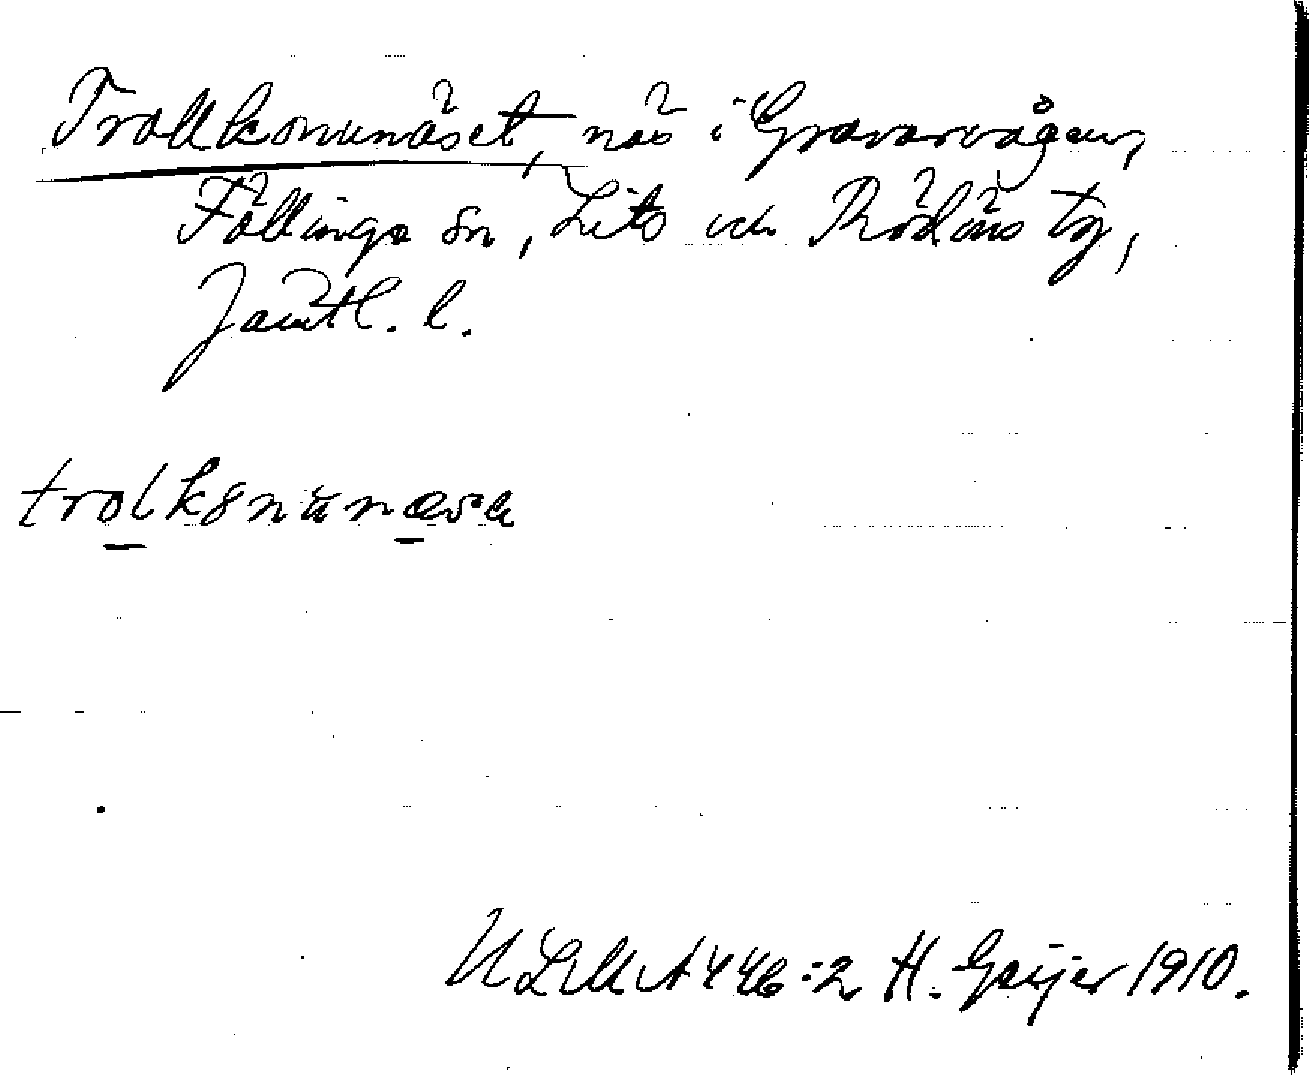 Trollkonunäset, näs i Gravarvågen,
Föllinge sn, Lits och Rödöns tg,
Jämtl. l.
ULMA 446:2 H. Geijer 1910.